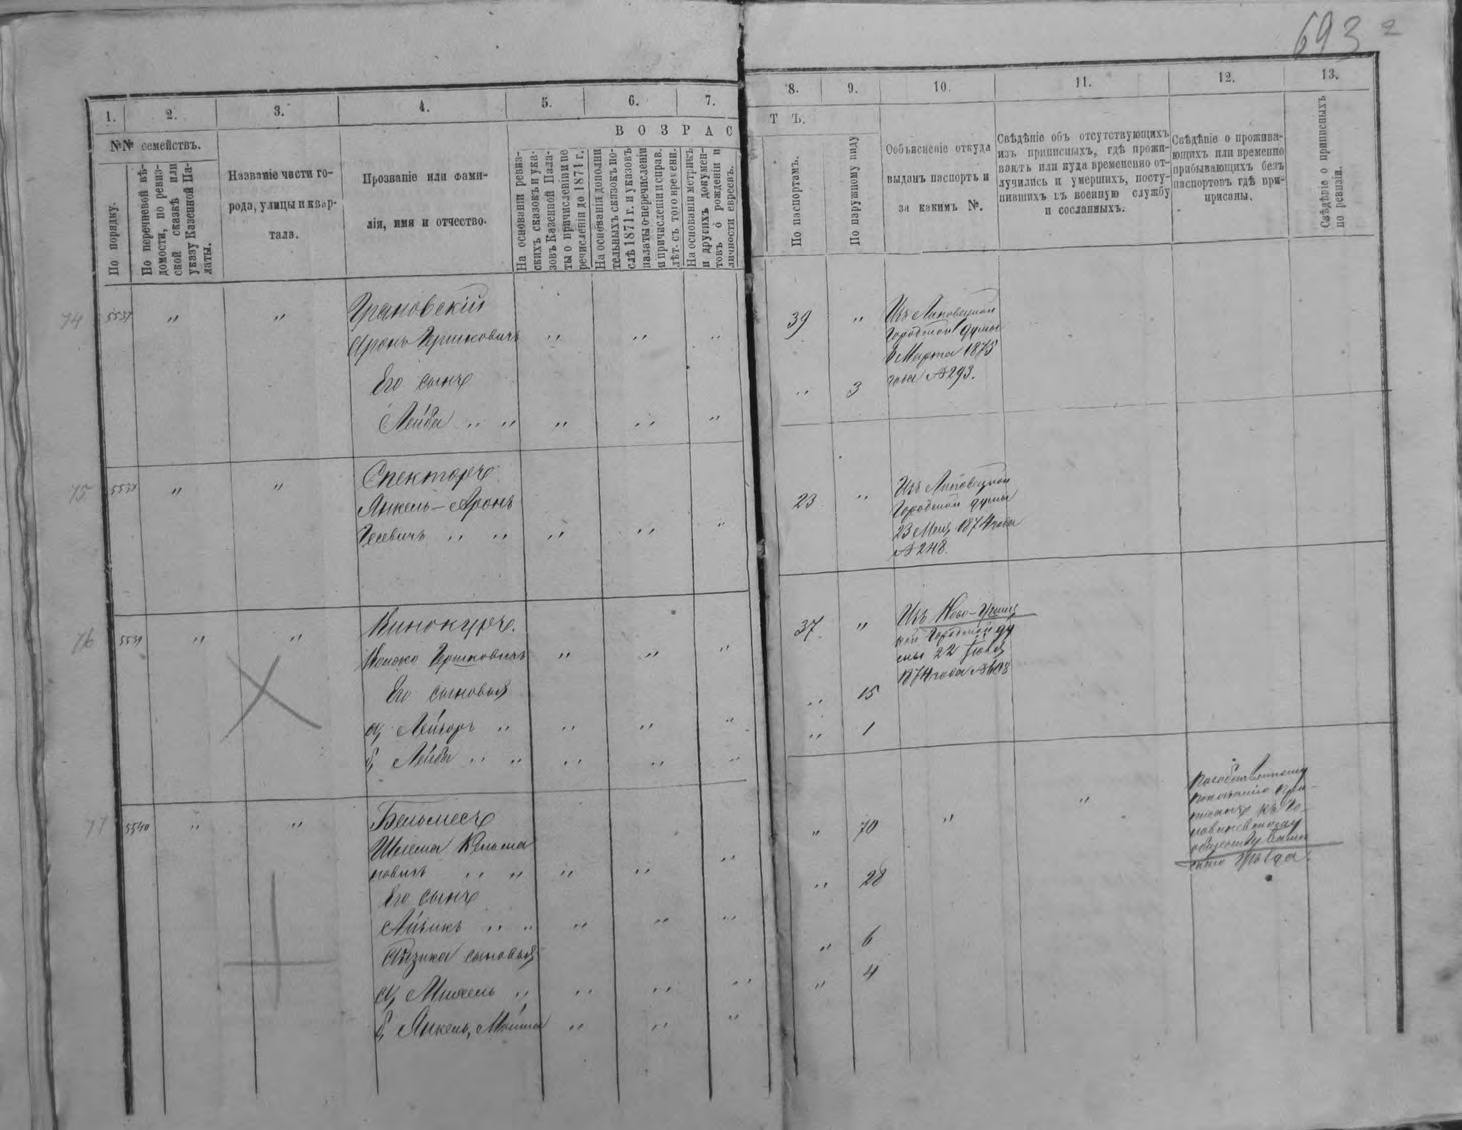 693 2
1.
2.
3.
4.
5.
6.
7.
8.
9.
10.
11.
12.
13.
№№ семействъ.
По порядку.
По перечневой вѣ-
домости, по ревиз-
ской сказкѣ или
указу Казенной Па-
латы.
Названіе части го-
рода, улицы и квар-
тала.
Прозваніе или фами-
лія, имя и отчество.
ВОЗРАС
ТЪ.
На основаніи ревиз-
скихъ сказокъ и ука-
зовъ Казенной Пала-
ты о причисленіи и пе
речисленіи до 1871 г.
На основаніи дополни
тельныхъ сказокъ по-
слѣ 1871 г. и указовъ
палаты о перечисленіи
и причисленіи и исправ.
лѣт. съ того времени.
На основаніи метрикъ
и другихъ докумен-
товъ о рожденіи и
личности евреевъ.
По паспортамъ.
По наружному виду
Объясненіе откуда
выданъ паспортъ и
за какимъ №.
Свѣдѣніе объ отсутствующихъ
изъ приписныхъ, гдѣ прожи-
ваютъ или куда временно от-
лучились и умершихъ, посту-
пившихъ въ военную службу
и сосланныхъ.
Свѣдѣніе о прожива-
ющихъ или временно
прибывающихъ безъ
паспортовъ гдѣ при-
писаны.
Свѣдѣніе о приписныхъ
по ревизіи.
74 5537 " " Грановскій
Аронъ Гершковичъ " " " 39 "
Его сынъ
Лейба " " " " " " 3
Изъ Липовецкой
Городской думы
8 Марта 1875
года №293.
75 5538 " " Спекторъ
Янкель-Аронъ
" " " " " 23 "
Изъ Липовецкой
Городской думы
1874 года
№248.
76 5539 " " Винокуръ.
Гершковичъ " " " 37 "
Его сыновья
а, " " " " " 15
б, Лейба " " " " " " 1
Изъ Ново-Ушиц
кой Городской ду
мы 22
1874 года
77 5540 " " Бельмесъ
" " " " " " 70 " "
Его сынъ
Айзикъ " " " " " " 28
Айзика сыновья
а, " " " " " 6
б, Янкель, " " " " 4